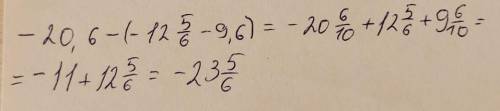 -20,6-(-12 5/6 -9,6) = -20 6/10 +12 5/6 +9 6/10 =
= -11+12 5/6 = -23 5/6